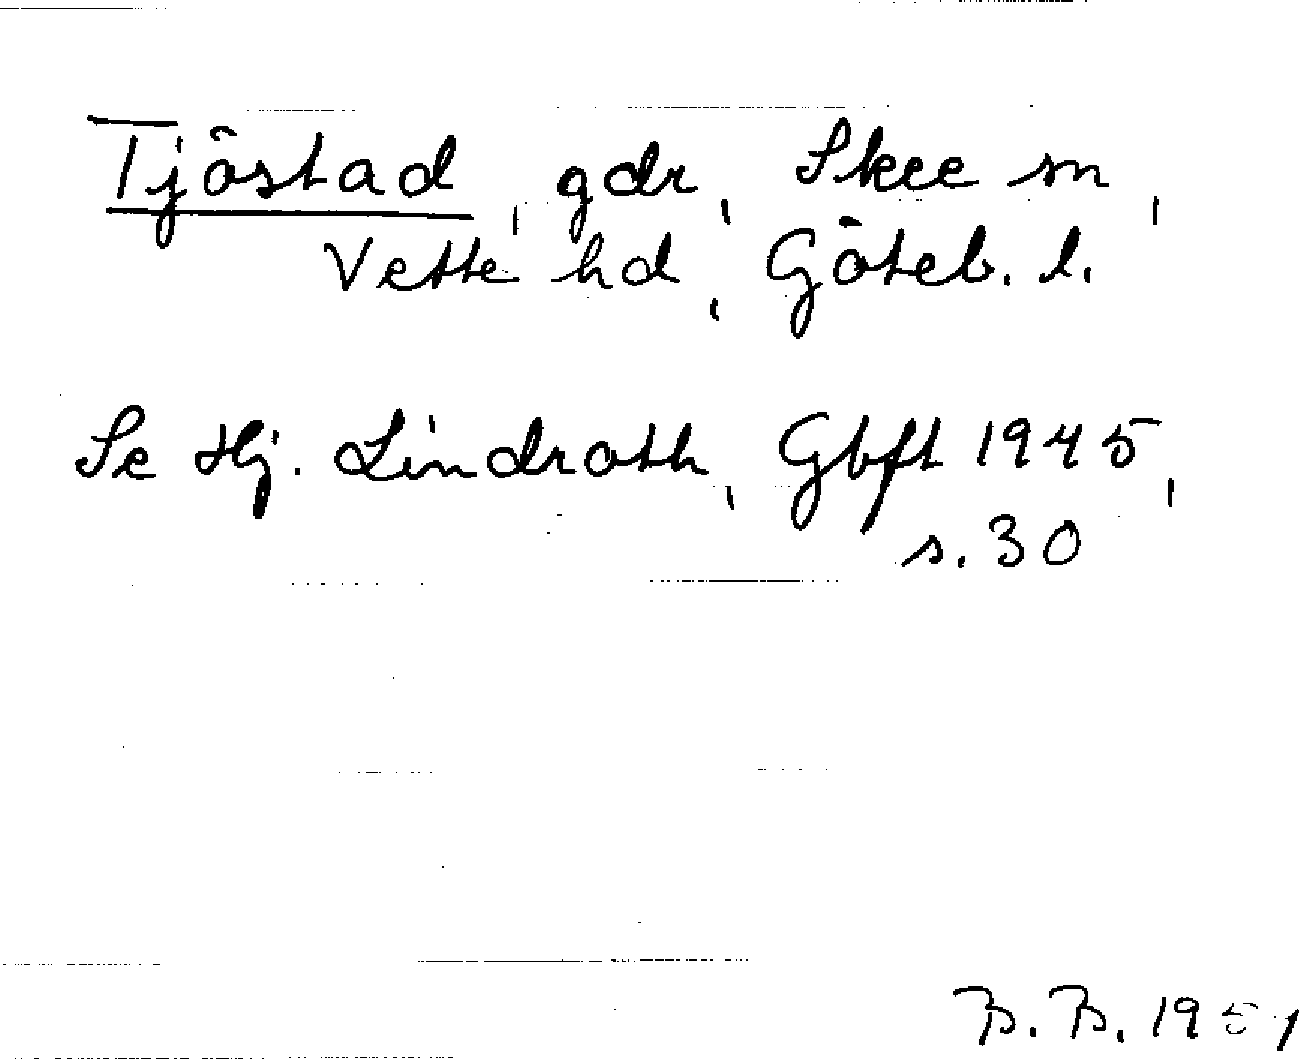 Tjöstad, gdr, Skee sn,
Vette hd, Göteb. l.
Se Hj. Lindroth, Gbft 1945,
s. 30
B. B. 1951